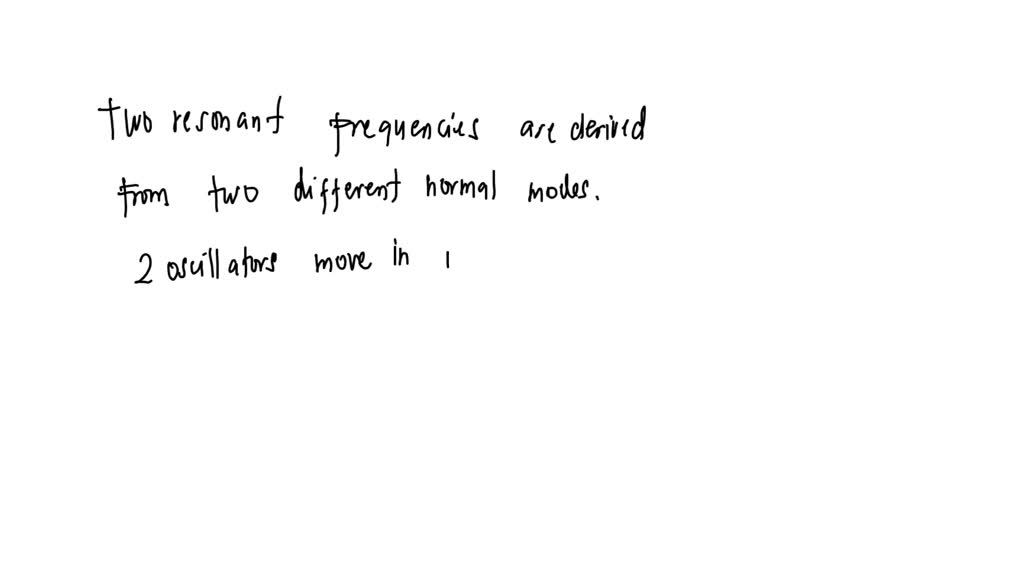 Two resonant frequencies are derived
from two different normal modes.
2 oscillators move in